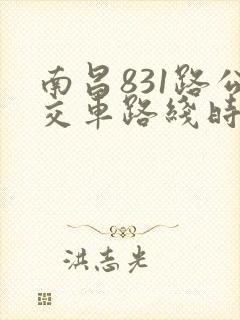 南昌831路公
交車路綫時
洪志光